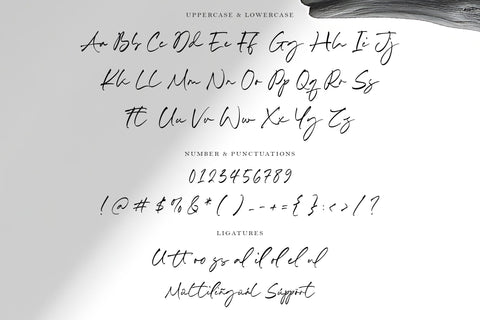 UPPERCASE & LOWERCASE
Aa Bb Cc Dd Ee Ff Gg Hh Ii Jj
Kk Ll Mm Nn Oo Pp Qq Rr Ss
Tt Uu Vv Ww Xx Yy Zz
NUMBER & PUNCTUATIONS
0123456789
! @ # $ % & * ( ) _ - + = { } : < > / ?
LIGATURES
ss al il ol el ul
Multilingual Support